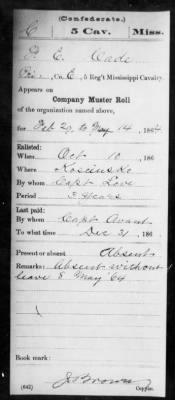 (Confederate.)
C 5 Cav. Miss.
E. Cade
Co. E, 5 Reg't Mississippi Cavalry.
Appears on
Company Muster Roll
of the organization named above,
for Feb 29 to May 14, 1864
Enlisted:
When Oct 10, 186
Where Kosciusko
By whom Capt Love
Period 3 Years
Last paid:
By whom Capt Avant
To what time Dec 31, 186
Present or absent Absent
Remarks: Absent without
leave 8 May 64
Book mark:
(642) J. Brown
Copyist.